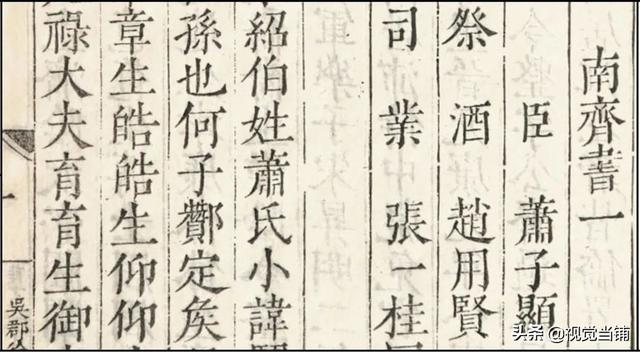 南齊書一
臣 蕭子顯
祭 酒 趙用賢
司 業 張一桂
紹伯姓蕭氏小諱
孫也何子酇定矦
章生皓皓生仰仰
祿大夫育育生御
吳郡
头条 @视觉当铺